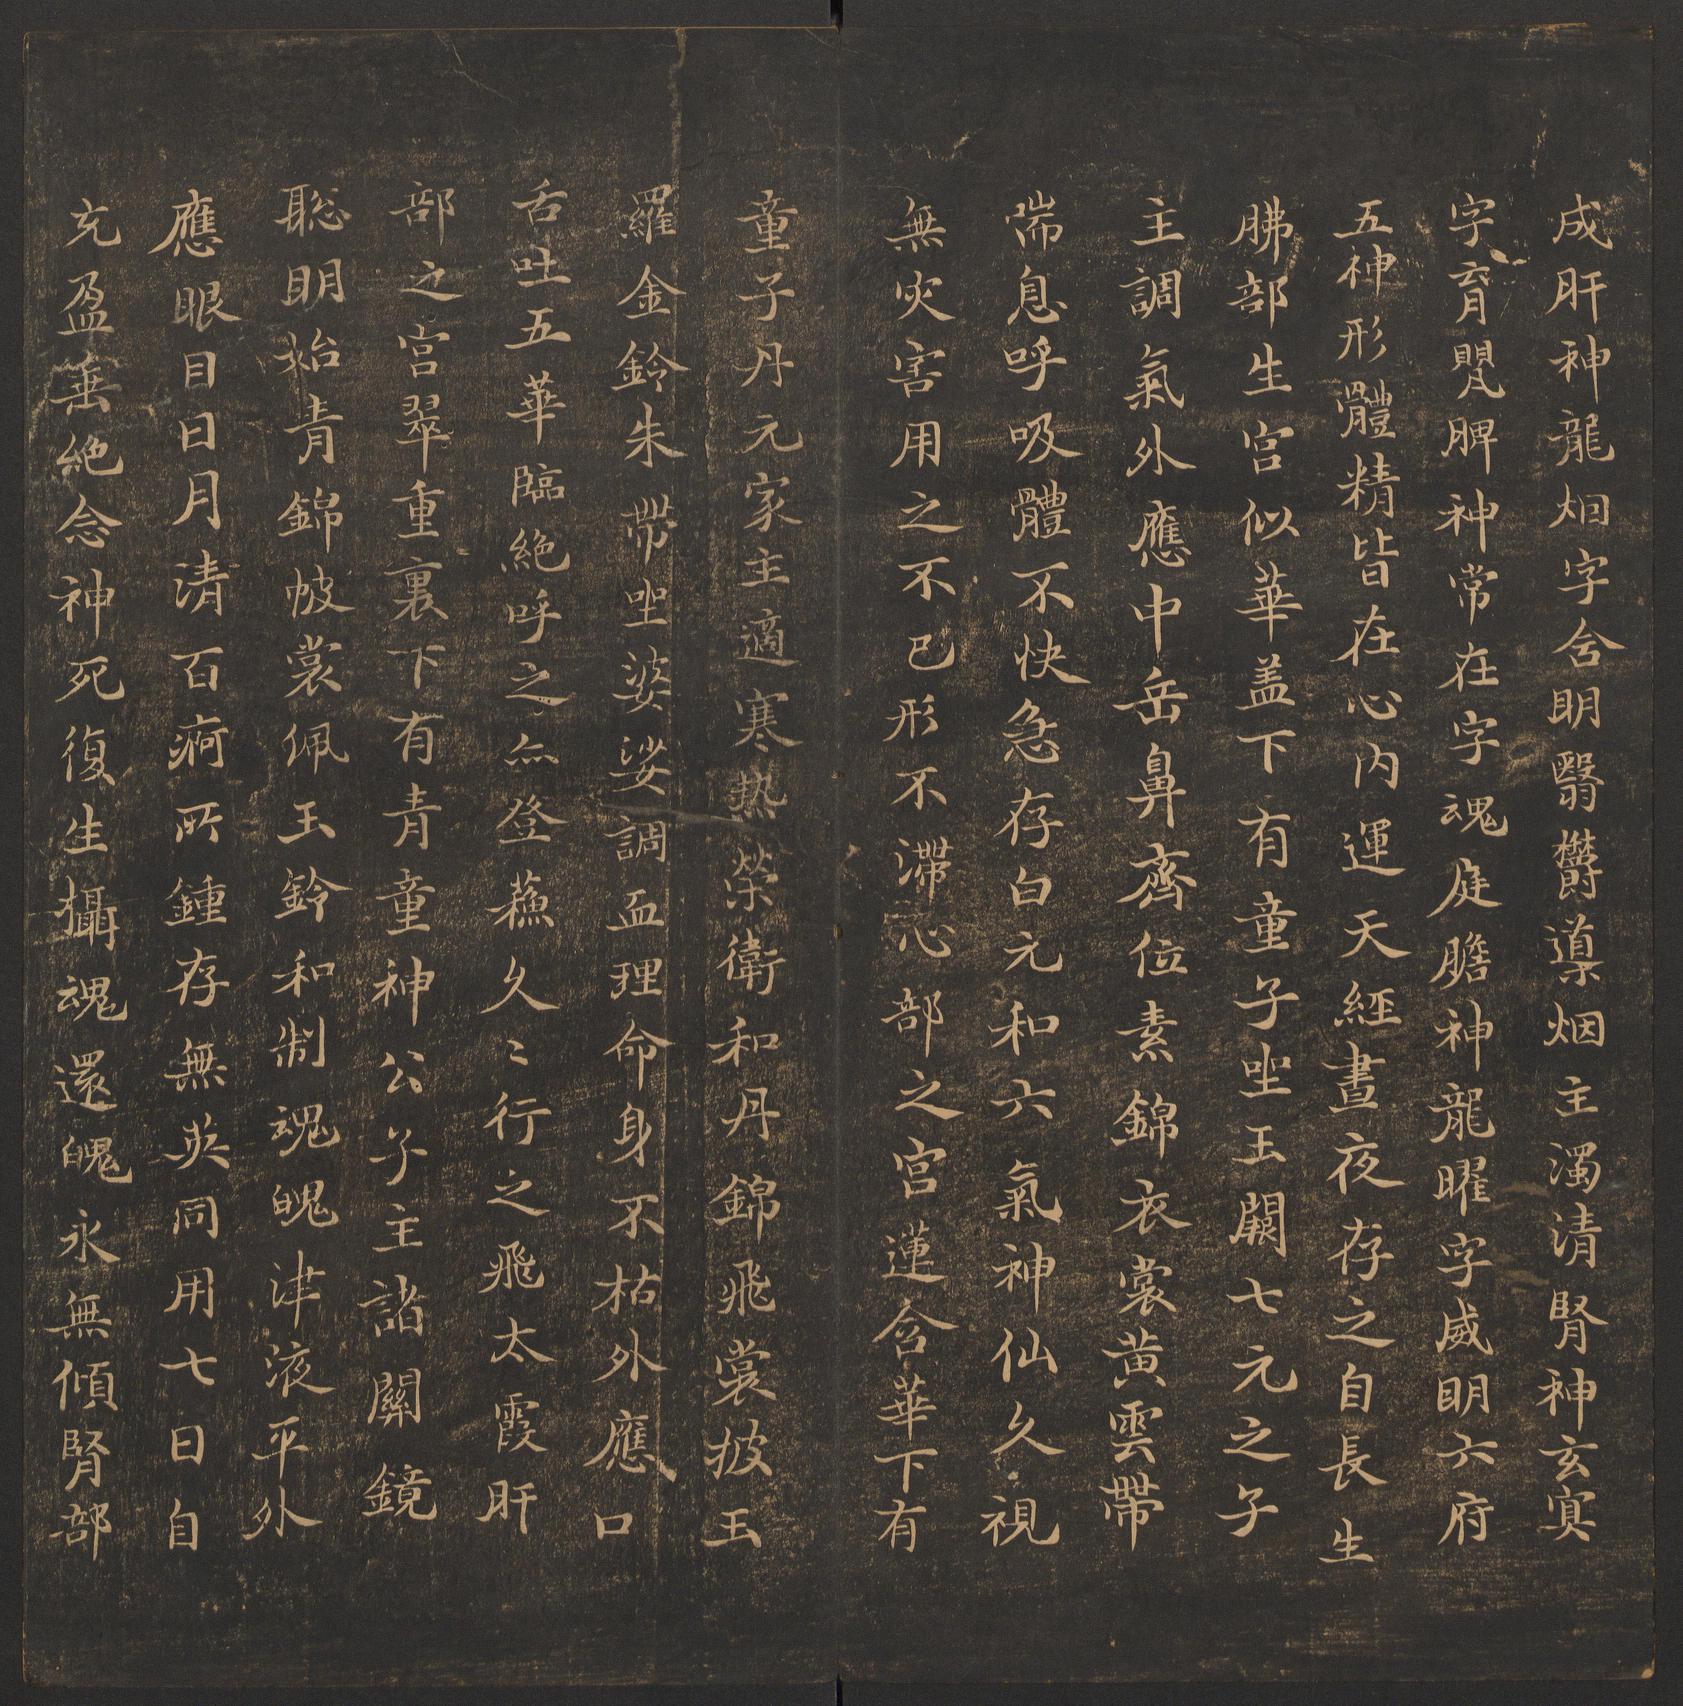 成肝神龍烟字含明翳欝導烟主濁清腎神玄冥
字育嬰脾神常在字魂庭膽神龍曜字威明六府
五神形體精皆在心内運天經晝夜存之自長生
肺部生宫似華盖下有童子坐玉闕七元之子
主調氣外應中岳鼻齊位素錦衣裳黄雲帶
喘息呼吸體不快急存白元和六氣神仙久視
無灾害用之不已形不滯心部之宫蓮含華下有
童子丹元家主適寒热榮衛和丹錦飛裳披玉
羅金鈴朱帶坐婆娑調血理命身不枯外應口
舌吐五華臨絶呼之亦登蘓久〻行之飛太霞肝
部之宫翠重裏下有青童神公子主諸關鏡
聡明始青錦帔裳佩玉鈴和制魂魄津液平外
應眼目日月清百痾所鍾存無英同用七日自
充盈垂絶念神死復生攝魂還魄永無傾腎部